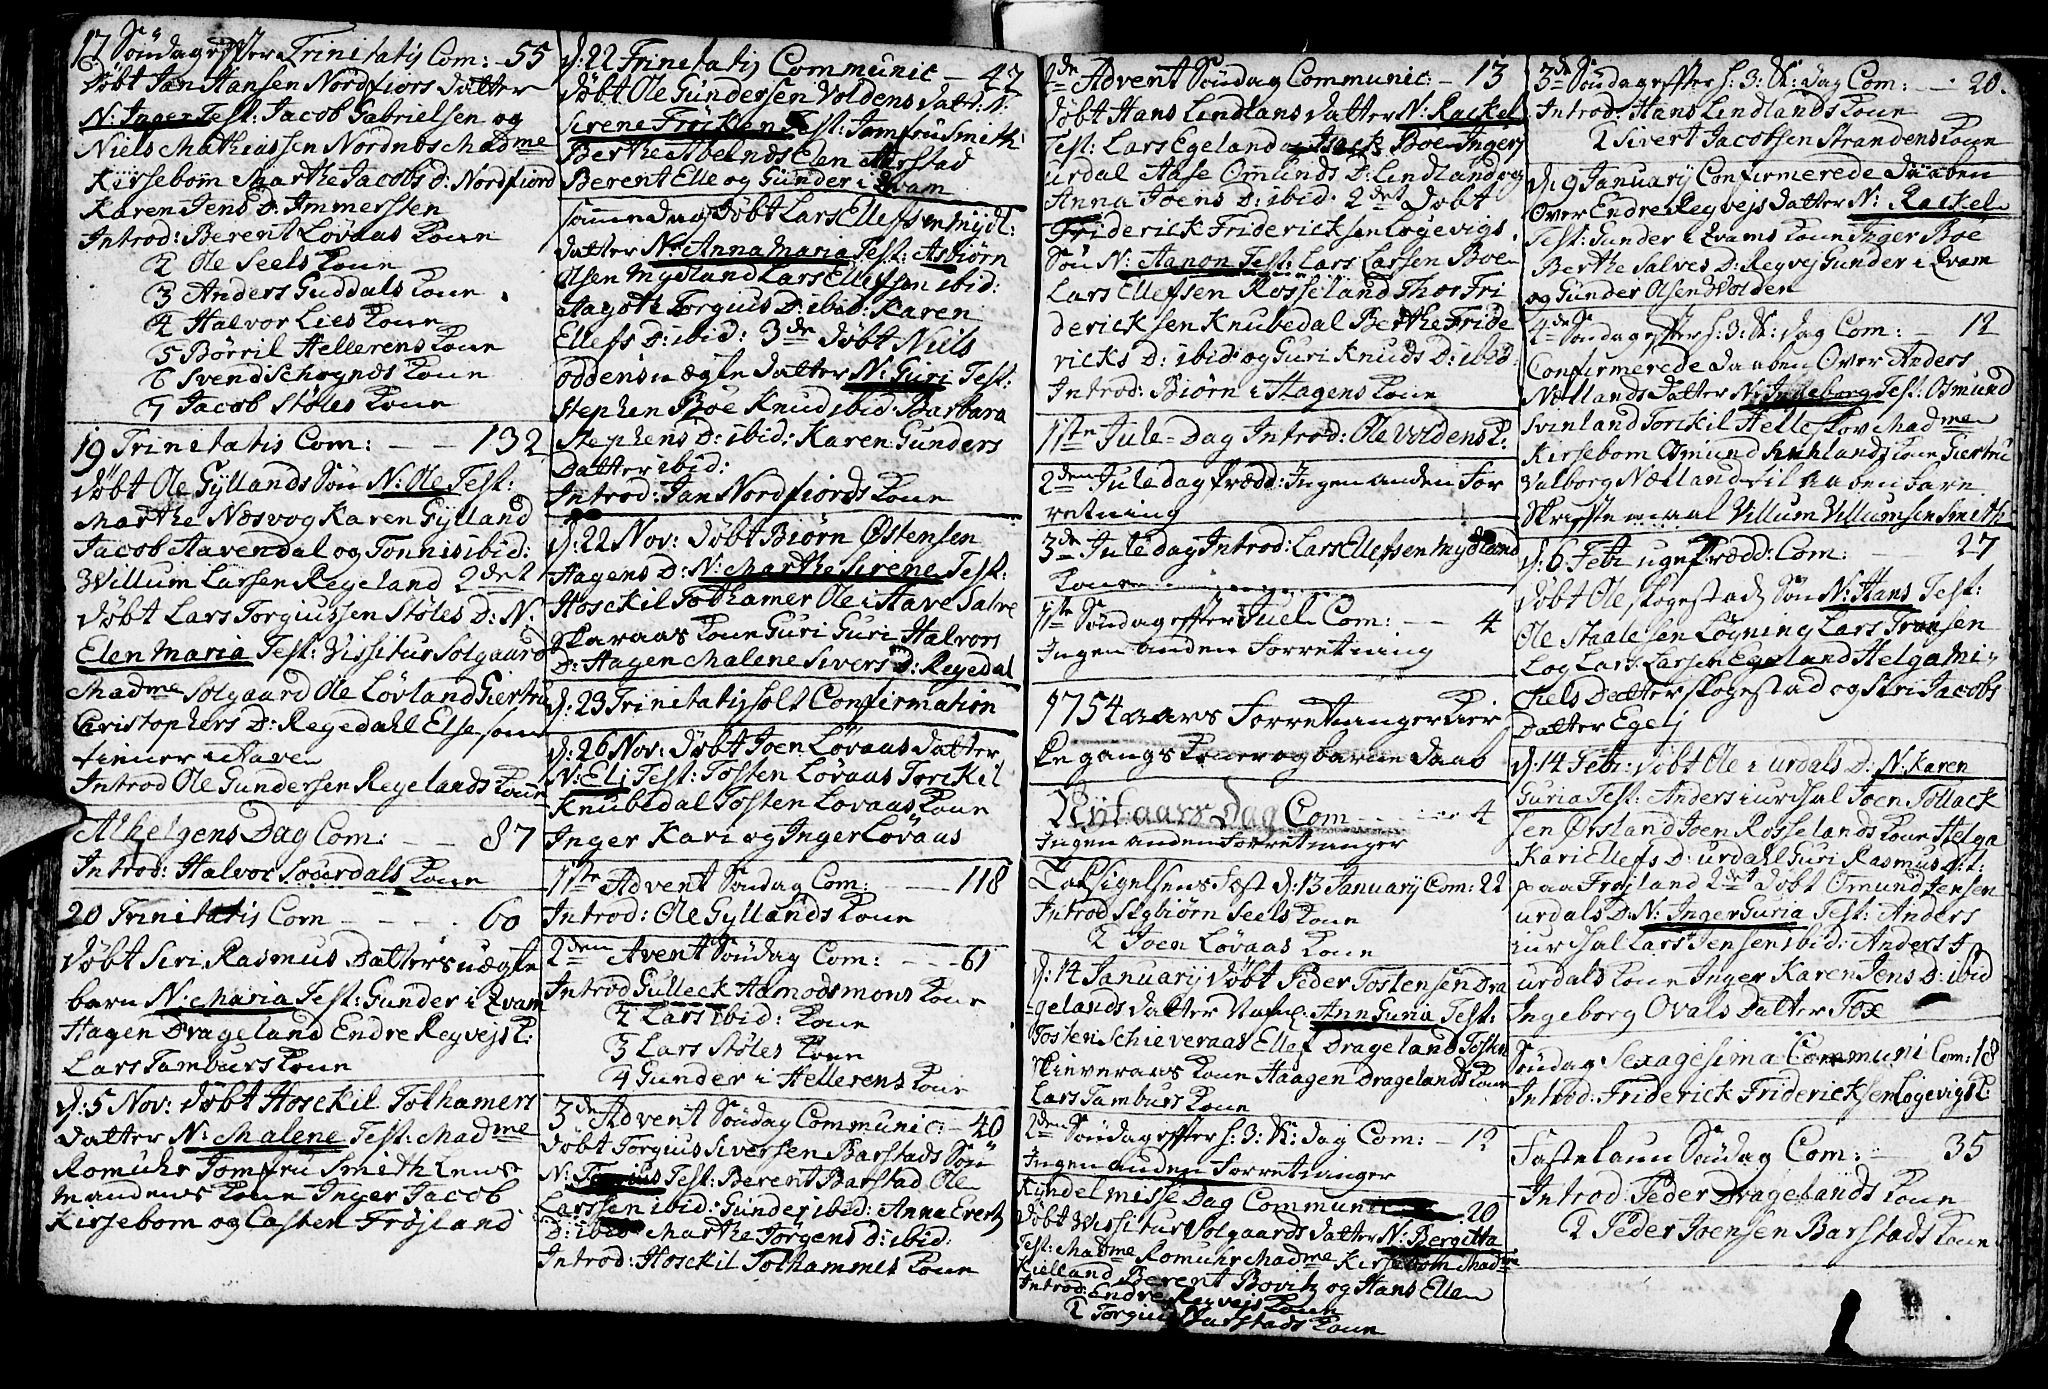 17 Söndag efter Trinitatis Com: 55
Döbt Jan Hansen Nordfiors Datter
N: Inger Test: Jacob Gabrielsen og
Niels Mathiassen Nordnbo Madme
Kirsebom Marthe Jacobs D: Nordfiord
Karen Jens D: Immerssen
Introd: Berent Lovaas Kone
2 Ole Seels Kone
3 Anders Guddals Kone
4 Halvor Lies Kone
5 Börril Hellerens Kone
6 Svend Schoynds Kone
7 Jacob Stöles Kone
19 Trinitatis Com: - - 132
Döbt Ole Gyllands Sön N: Ole Test:
Marthe Næsvog Karen Gylland
Jacob Aavendal og Tonnis ibid:
Willum Larsen Regeland 2det
Döbt Lars Torgiussen Stöles D: N:
Elen Maria Test: Vissitur Solgaard
Madme Solgaard Ole Lövland Giertru
Christophers D: Regedahl Else som
tiener i Haven
Introd Ole Gundersen Regelands Kone
Alhelgens Dag Com: - - 87
Introd: Halvor Soverdals Kone
20 Trinitatis Com - - - 60
Döbt Siri Rasmus Datters uægte
barn N: Maria Test: Gunder i Qvam
Hagen Drageland Endre Regvejs K:
Lars Tamburs Kone
d: 5 Nov: Döbt Hosckil Tothamers
Datter N: Malene Test: Madme
Romuhr Jomfru Smith Lens
mandens Kone Inger Jacob
Kirsebom og Casten Fröjland
d: 22 Trinitatis Communic - 42
Döbt Ole Gundersen Voldens Datt: N:
Sirene Test: Jomfru Smith
Berthe Abelnds Elen Aarstad
Berent Elle og Gunder i Qvam
Samme dag Döbt Lars Ellefsen Mydl:
Datter N: Anna Maria Test: Asbiörn
Olsen Mydland Lars Ellefsen ibid:
Aagothe Torgius D: ibid: Karen
Ellefs D: ibid: 3de Döbt Niels
Oddens uægte Datter N: Guri Test:
Stephen Boe Knud ibid: Barbara
Stephens D: ibid: Karen Gunders
Datter ibid:
Introd: Jan Nordfiords Kone
d: 22 Nov: Döbt Biörn Östensen
Hagens D: N: Marthe Sirene Test:
Hosckil Tothamer Ole i Have Salve
Skaraas Kone Guri Guri Halvors
D: Hagen Malene Sivers D: Regedal
d: 23 Trinitatis holt Confirmation
d: 26 Nov: Döbt Joen Lövaas Datter
N: Eli Test: Tosten Lövaas Torckil
Knubedal Tosten Lovaas Kone
Inger Kari og Inger Lövaas
1ste Advent Söndag Com: - - 118
Introd: Ole Gyllands Kone
2den Avent Söndag Com: - - 61
Introd Gulleck Aamodsmons Kone
2 Lars ibid: Kone
3 Lars Stöles Kone
4 Gunder i Hellerens Kone
3de Advent Söndag Communic: - 40
Döbt Torgius Siversen Barstads Sön
N: Test: Berent Barstad Ole
Larssen ibid: Gunder ibid: Anna Everts
D: ibid Marthe Jörgens D: ibid:
Introd: Hosckil Tothammer Kone
4de Advent Söndag Communic: - 13
Döbt Hans Lindlans Datter N: Rackel
Test: Lars Egeland og Boe Inger
urdal Aase Omunds D: Lindland og
Anna Joens D: ibid: 2det Döbt
Friderick Fridericksen Logevigs
Sön N: Aanon Test: Lars Larsen Boe
Lars Ellefsen Rosseland Thor Fri
dericksen Knubedal Berthe Fride
ricks D: ibid: og Guri Knuds D: ibid.
Introd: Biörn i Hagens Kone
1ste Jule-Dag Introd: Ole Voldens K:
2den Juledag Prædd: Ingen anden For
retning
3de Juledag Introd: Lars Ellefsen Mydland
Kone
1ste Söndag efter Juel Com: - - 4
Ingen anden Forretning
1754 aars Forretninger Kier
ke gangs Koner og barne Daab
Nyt aars Dag Com - - - 4
Ingen anden Forretninger
Taksigelsens Fest d: 13 January Com: 22
Introd Segbiörn Seels Kone
2 Joen Lövaas Kone
d: 14 January Döbt Peder Tostensen Dra
gelands Datter Nafnl: Ann Guria Test:
Tosten Schieveraas Ellef Drageland Tosten
Skieveraas Kone Haagen Dragelands Kone
Lars Tamburs Kone
2den Söndag efter h: 3: K: Dag Com: - 12
Ingen anden Forretninger
Kyndelmisse Dag Communi 20
Döbt Vissitur Solgaards Datter N: Bergitta
Test: Madme Romuhr Madme Kirsebom Madme
Kielland Berent Bovitz og Hans Ellen
Introd: Endre Regvejs Kone
2 Torgius Barstads Kone
3de Söndag efter h: 3: K: Dag Com: - - 20.
Introd: Hans Lindlands Kone
2 Sivert Jacobsen Strandens Kone
d: 9 January Confirmerede Daaben
Over Endre Regvejs Datter N: Rackel
Test: Gunder i Qvams Kone Inger Boe
Berthe Salves D: Regvej Gunder i Qvam
og Gunder Olsen Volden
4de Söndag efter h: 3: K: Dag Com: - 12
Confirmerede Daaben Over Anders
Nætlands Datter N: Ingeborg Test: Osmund
Svinland Torckil Helleskov Madmen
Kirsebom Osmund Kone Giertru
Valborg Nætland til Daaben bare
Skriftemaal Villum Villumsen Smith
d: 6 Feb: ugeprædd: Com: - 27
Döbt Ole Skogestads Sön N: Hans Test:
Ole Staalesen Lögning Lars Transen
Log Lars Larsen Egeland Helga Mi-
chels Datter Skogestad og Siri Jacobs
Datter Egelj
d: 14 Feb: Döbt Ole i urdals D: N: Karen
Guria Test: Anders i urdhal Joen Tollack
sen Örsland Joen Rosselands Kone Helga
Kari Ellefs D: urdahl Guri Rasmus D:
paa Fröjland 2det Döbt Omund Jensen
urdals D: N: Inger Guria Test: Anders
i urdhal Lars Jensen ibid: Anders I
urdals Kone Inger Karen Jens D: ibid
Ingeborg Ovals Datter Fox
Söndag Sexagesima Communi Com: 18
Introd: Friderick Fridericksen Logevigs K:
Fastelaun Söndag Com: - 35
Introd: Peder Dragelands Kone
2 Peder Joensen Barstads Kone